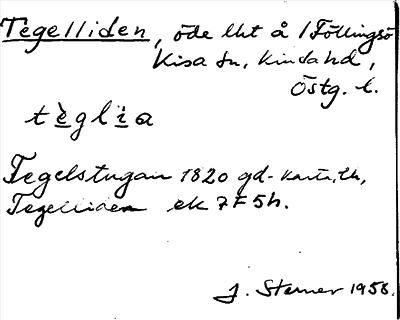 Tegelliden, öde lht å 1 Föllingsö
Kisa sn, Kinda hd,
Östg. l.
tèglia
Tegelstugan 1820 gd-karta, lh,
Tegelliden ek 7F5h.
J. Sterner 1958.